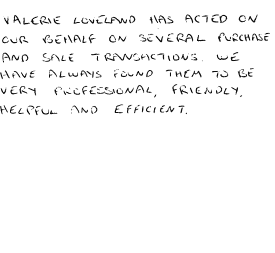 VALERIE LOVELAND HAS ACTED ON
OUR BEHALF ON SEVERAL PURCHASE
AND SALE TRANSACTIONS. WE
HAVE ALWAYS FOUND THEM TO BE
VERY PROFESSIONAL, FRIENDLY,
HELPFUL AND EFFICIENT.